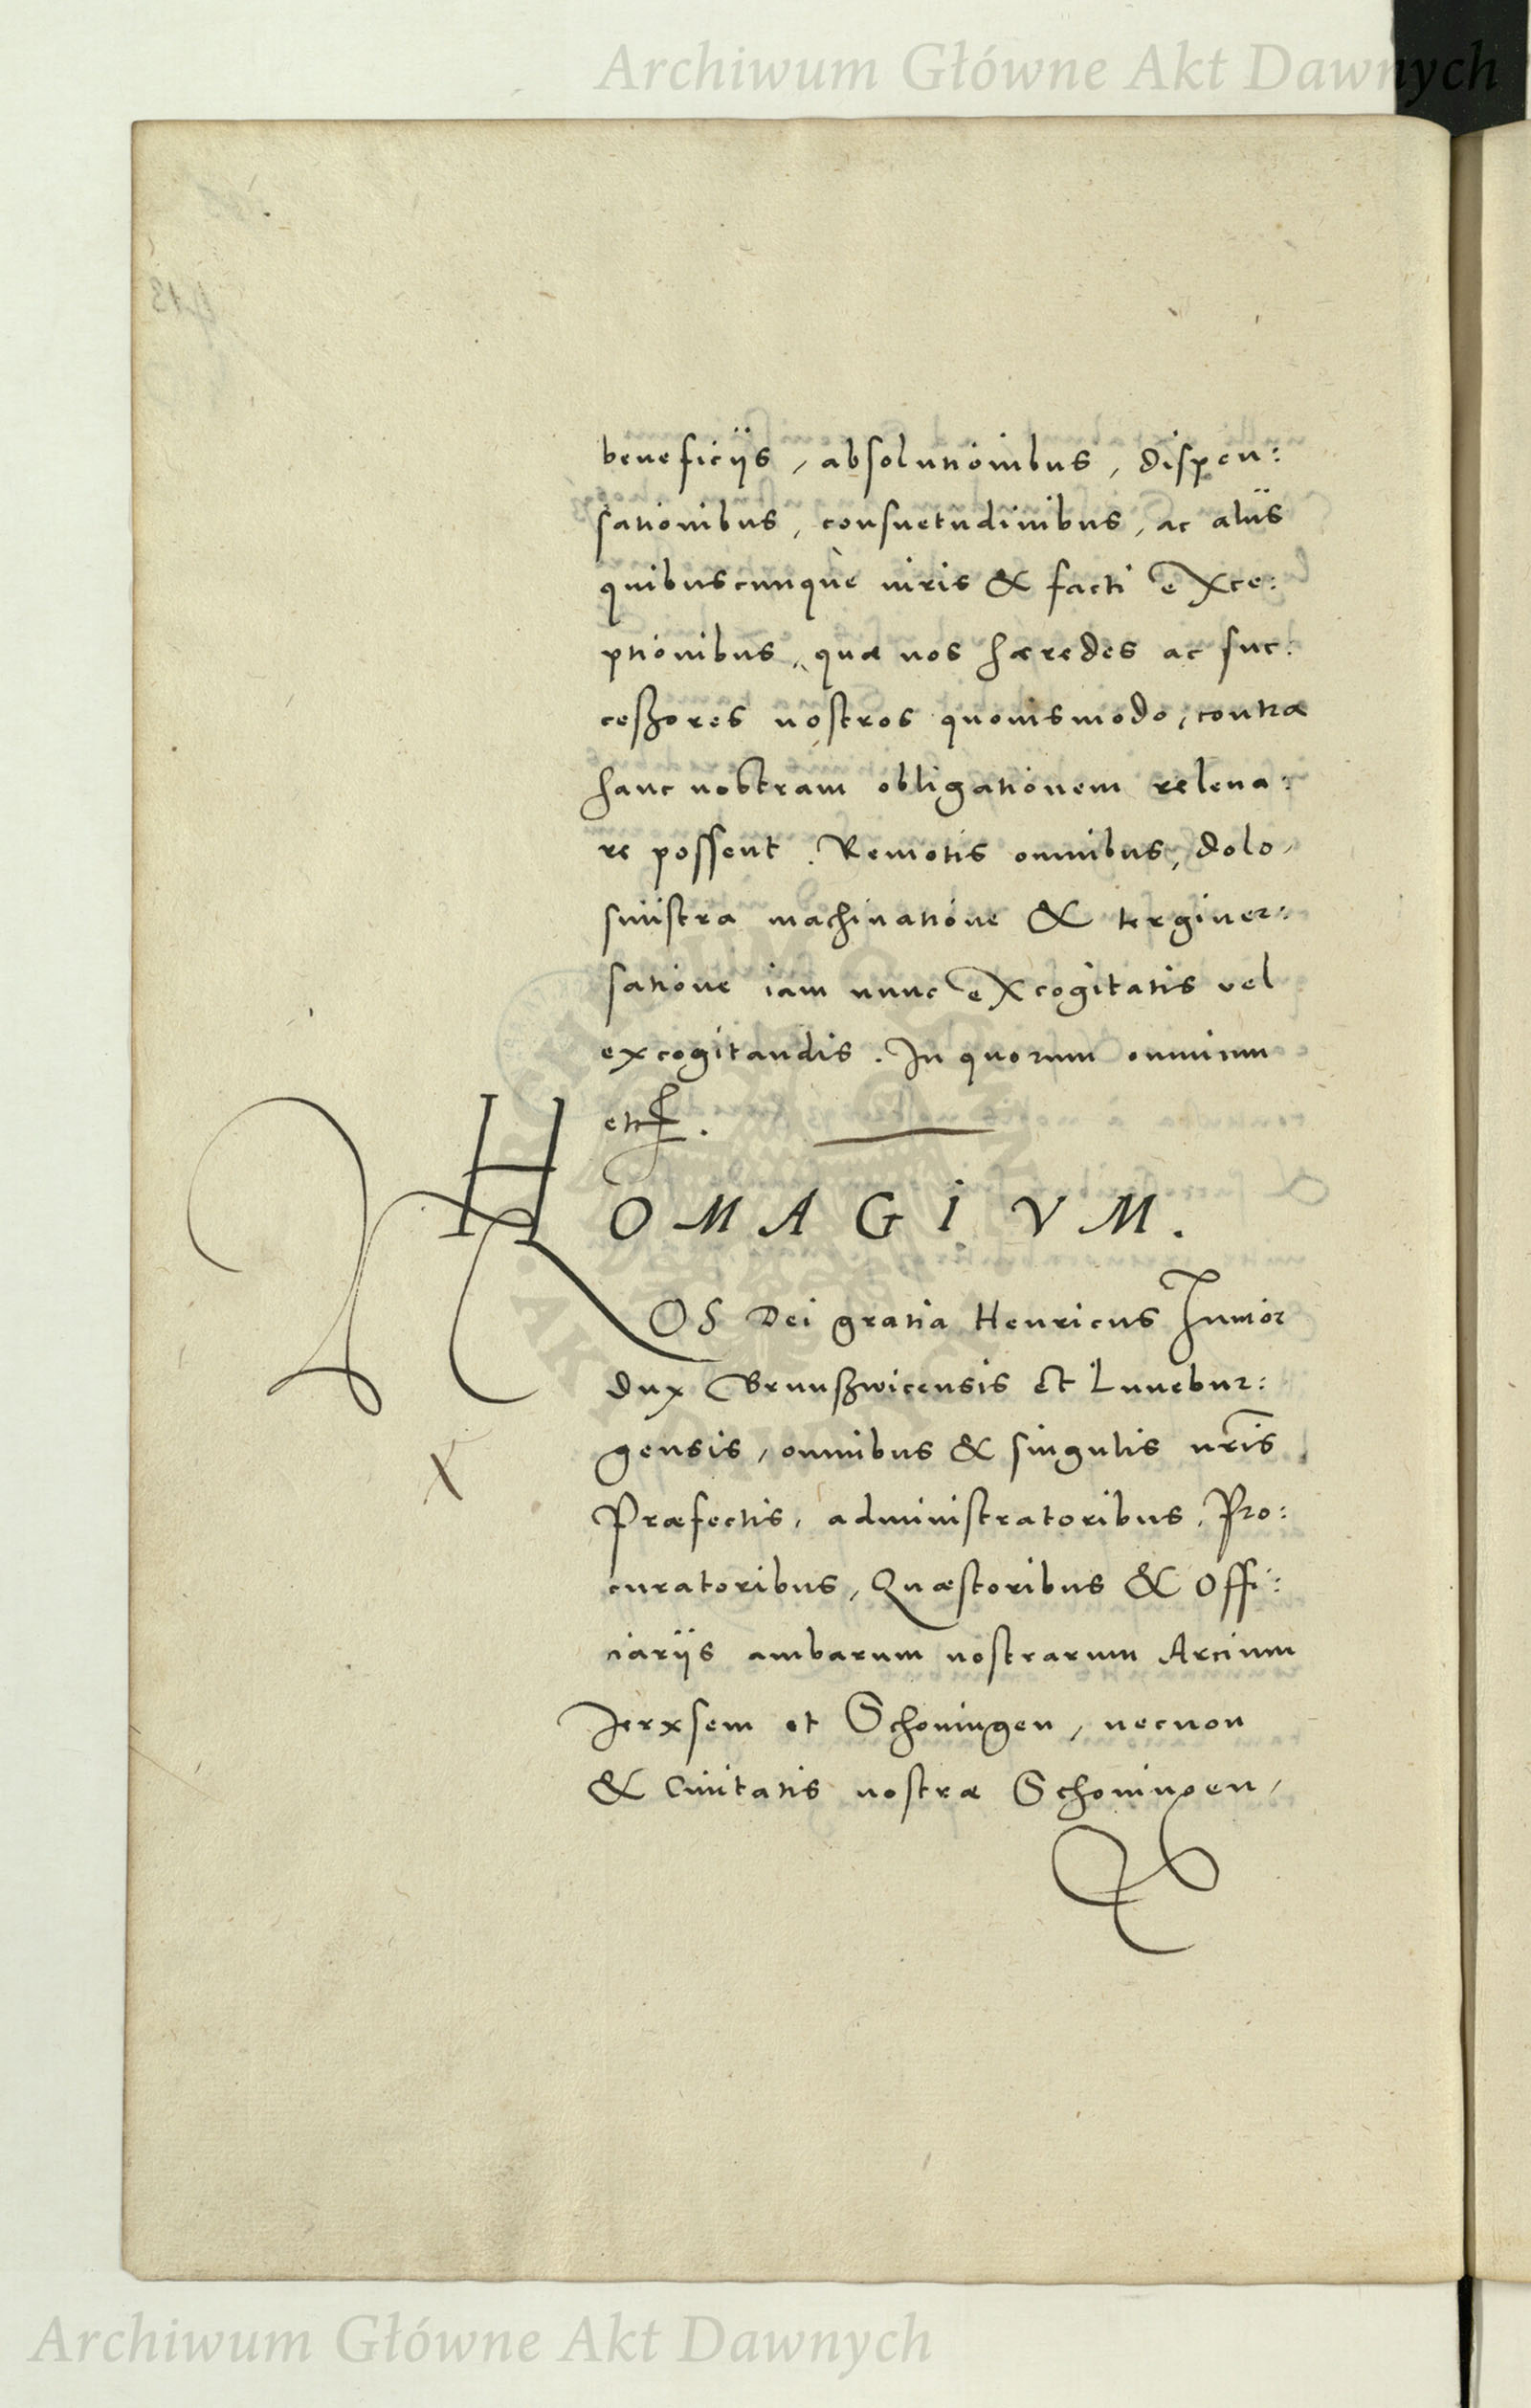 Archiwum Główne Akt Dawnych
beneficijs, absolutionibus, dispen:
sationibus, consuetudinibus, ac alijs
quibuscunquè iuris & facti exce:
ptionibus, quæ nos hæredes ac suc:
ceßores nostros quouismodo, contra
hanc nostram obligationem releua:
re possent. Remotis omnibus, dolo,
sinistra machinatione & tergiuer:
satione iam nunc excogitatis vel
excogitandis. In quorum omnium
etc.
HOMAGIVM.
NOS Dei gratia Henricus Iunior
dux Brunßwicensis et Lunebur:
gensis, omnibus & singulis nris
Præfectis, administratoribus, Pro:
curatoribus, Quæstoribus & Offi:
ciarijs ambarum nostrarum Arcium
Jerxsem et Schoningen, necnon
& Ciuitatis nostræ Schoningen,
Archiwum Główne Akt Dawnych